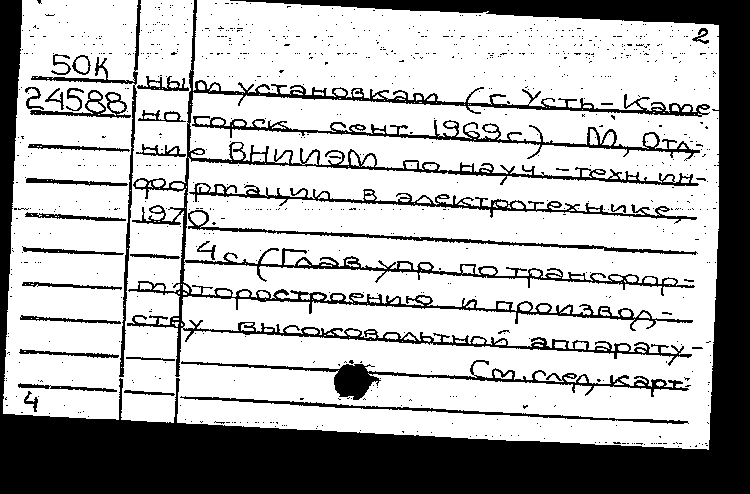 2
50К
24588
ным установкам (г. Усть-Каме-
ногорск, сент. 1969г.). М., Отд,-
ние ВНИИЭМ по науч.-техн. ин-
формации в электротехнике,
1970.
4с. (Глав. упр. по трансфор-
маторостроению и производ-
ству высоковольтной аппарату-
См. след. карт.
4